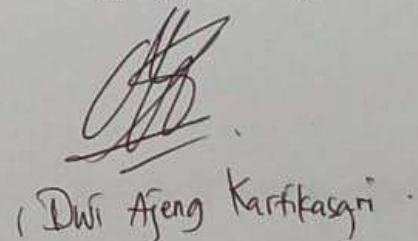 ( Dwi Ajeng Kartikasari .